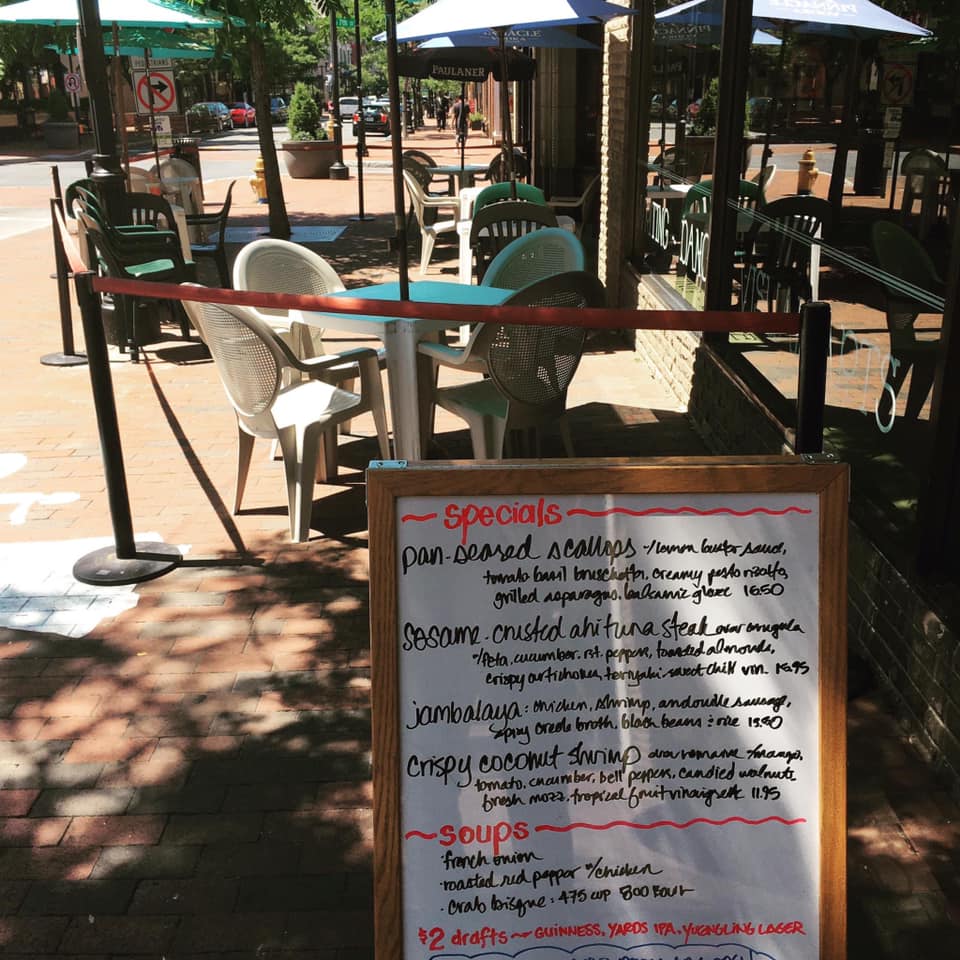 PINNACLE
PINNACLE
PAULANER
PEDESTRIANS
~ specials ~
pan-seared scallops w/lemon butter sauce,
tomato basil bruschetta, creamy pesto risotto,
grilled asparagus, balsamic glaze 16.50
sesame-crusted ahi tuna steak over arugula
w/feta, cucumber, rst. peppers, toasted almonds,
crispy artichokes, teriyaki-sweet chili vin. 15.95
jambalaya: chicken, shrimp, andouille sausage,
spicy creole broth, black beans & rice 13.50
crispy coconut shrimp over romaine w/mango,
tomato, cucumber, bell peppers, candied walnuts,
fresh mozz, tropical fruit vinaigrette 11.95
~ soups ~
· french onion
· roasted red pepper w/chicken
· crab bisque: 4.75 cup 8.00 bowl
$2 drafts ~ GUINNESS, YARDS IPA, YUENGLING LAGER